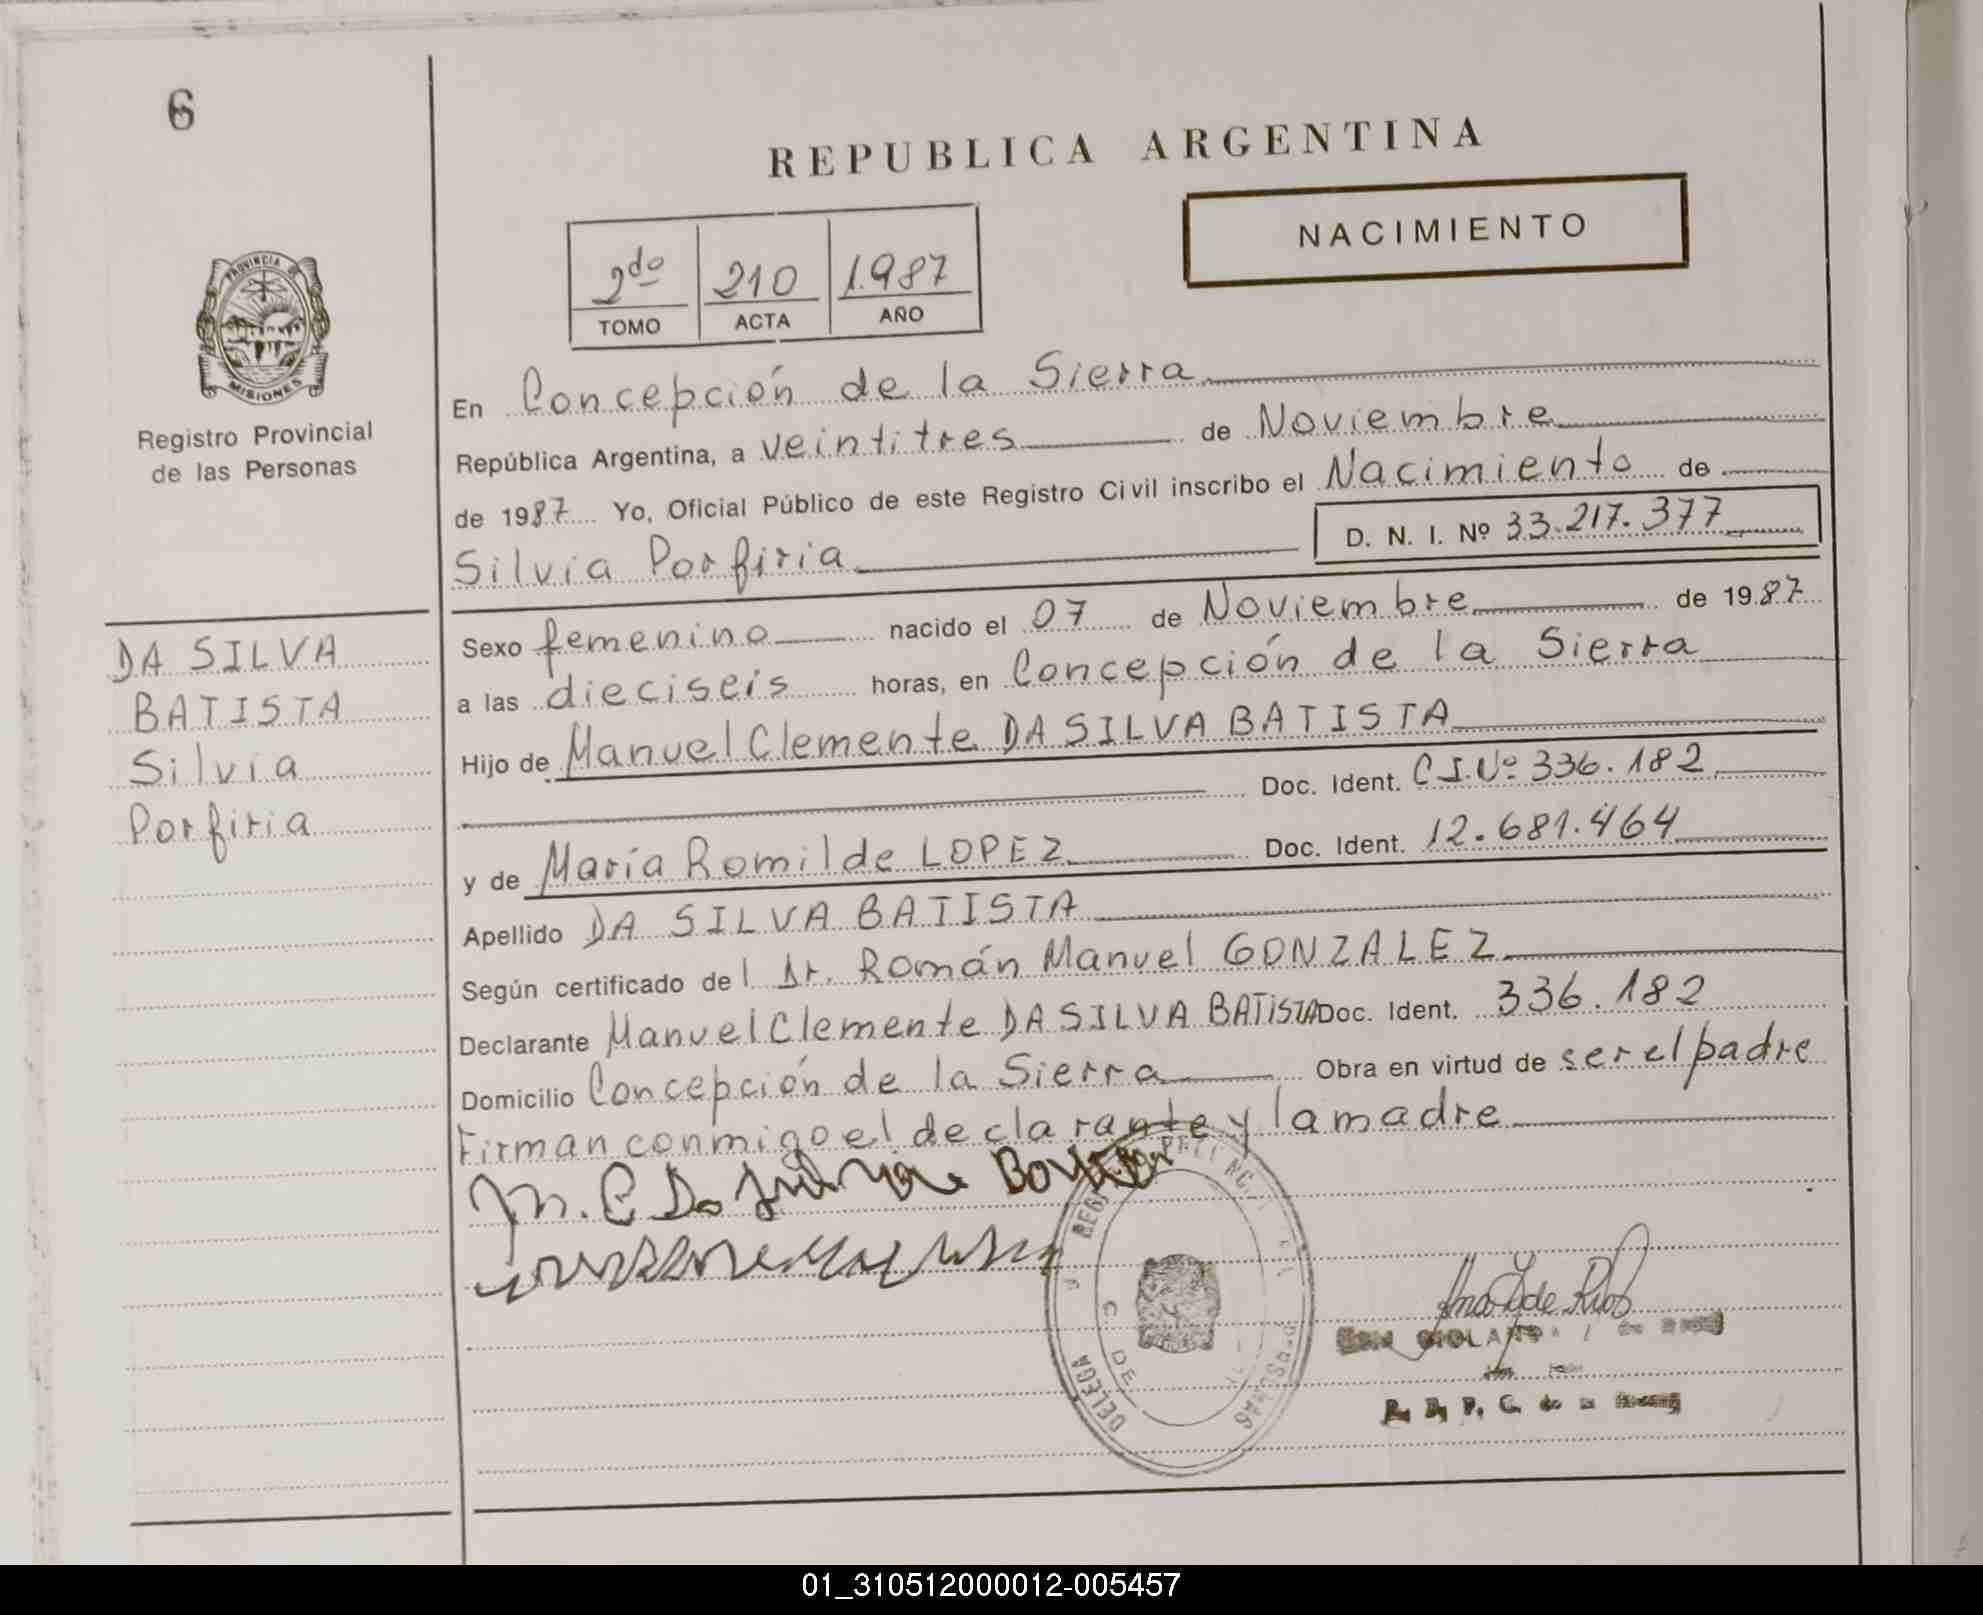 6
REPUBLICA ARGENTINA
NACIMIENTO
2do 210 1.987
TOMO ACTA AÑO
PROVINCIA DE
MISIONES
Registro Provincial
de las Personas
En Concepción de la Sierra
República Argentina, a veintitres de Noviembre
de 1987 Yo, Oficial Público de este Registro Civil inscribo el Nacimiento de
Silvia Porfiria D. N. I. Nº 33.217.377
DA SILVA
BATISTA
Silvia
Porfiria
Sexo femenino nacido el 07 de Noviembre de 1987
a las dieciseis horas, en Concepción de la Sierra
Hijo de Manuel Clemente DA SILVA BATISTA
Doc. Ident. C.I.Nº 336.182
y de María Romilde LOPEZ Doc. Ident. 12.681.464
Apellido DA SILVA BATISTA
Según certificado del Dr. Román Manuel GONZALEZ
Declarante Manuel Clemente DA SILVA BATISTA Doc. Ident. 336.182
Domicilio Concepción de la Sierra Obra en virtud de ser el padre
Firman conmigo el declarante y la madre
M. C Da
DELEGA
C. DE
R. P. P. C. de
01_310512000012-005457